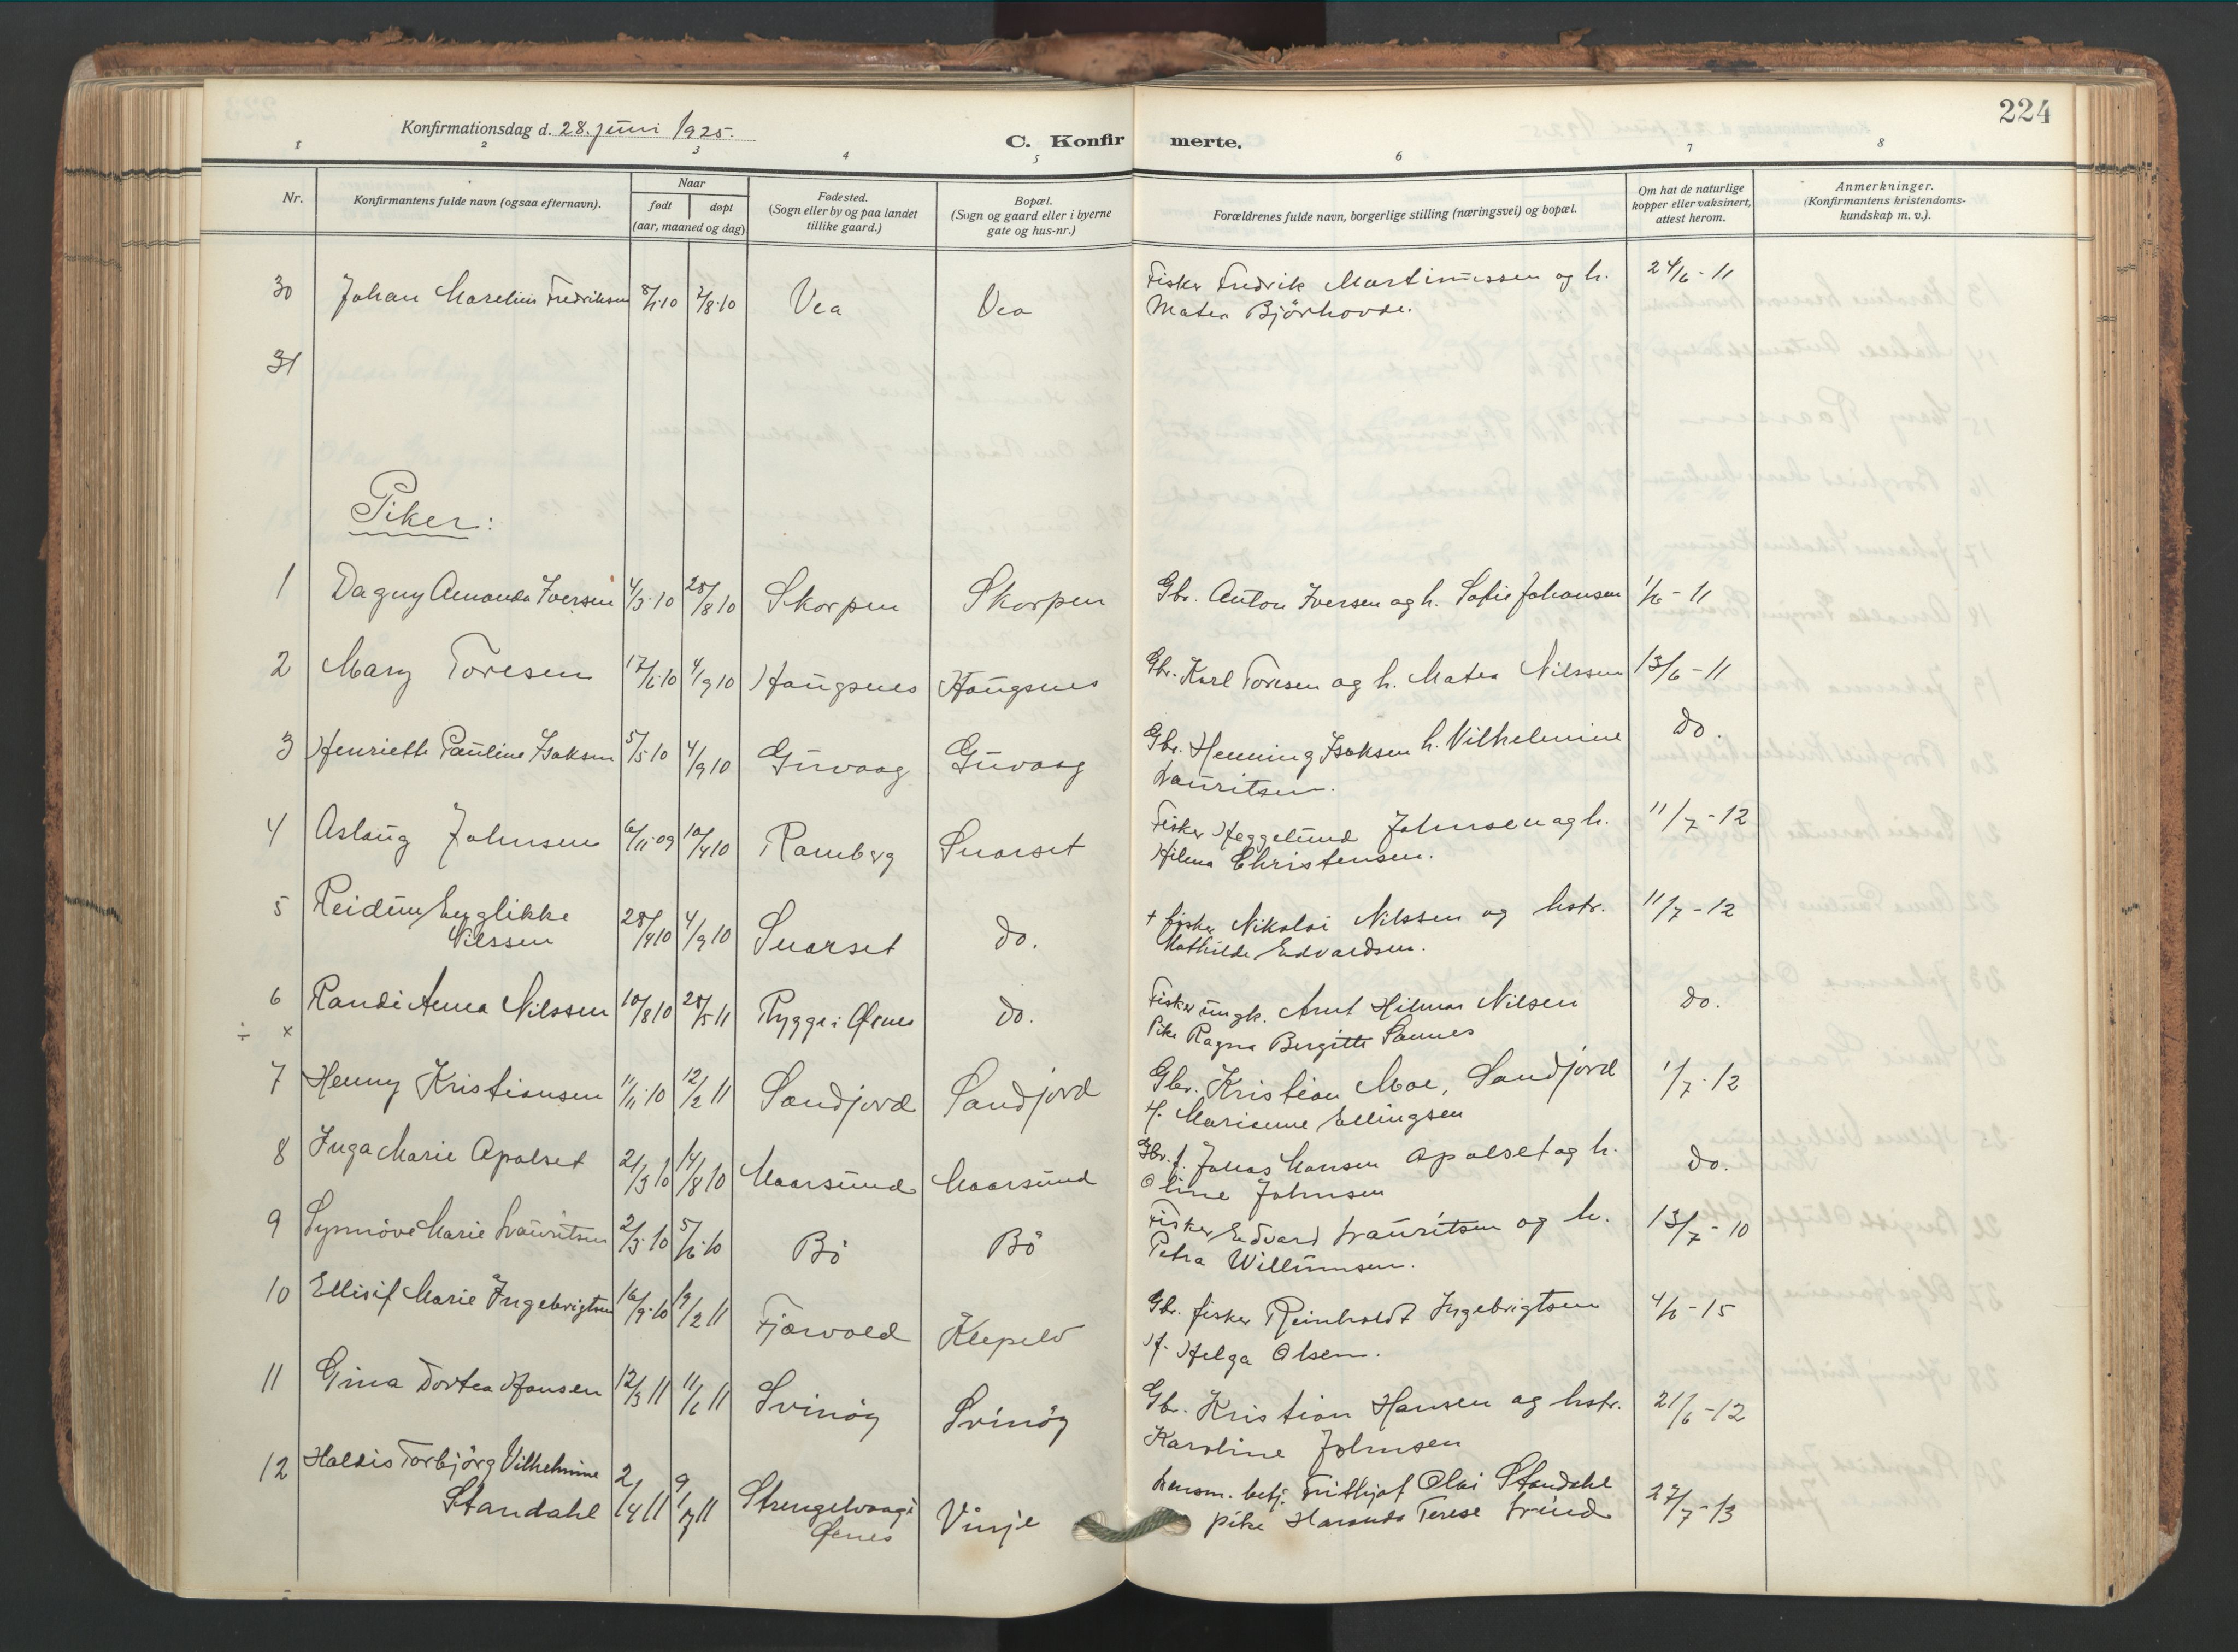 224
Konfirmationsdag d. 28. juni 1925.
C. Konfirmerte.
1 2 3 4 5 6 7 8
Nr.
Konfirmantens fulde navn (ogsaa efternavn).
Naar
født døpt
(aar, maaned og dag)
Fødested.
(Sogn eller by og paa landet
tillike gaard.)
Bopæl.
(Sogn og gaard eller i byerne
gate og hus-nr.)
Forældrenes fulde navn, borgerlige stilling (næringsvei) og bopæl.
Om hat de naturlige
kopper eller vaksinert,
attest herom.
Anmerkninger.
(Konfirmantens kristendoms-
kundskap m. v.).
30 Johan Marelius Fredriksen 10 7/8 10 Vea Vea Fisker Fredrik Martinussen og h. 24/6 - 11
Matea Bjørhovde.
31
Piker:
1 Dagny Amanda Iversen 4/3 10 28/8 10 Skorpen Skorpen Gbr. Anton Iversen og h. Sofie Johansen 1/6 - 11
2 Mary Toresen 17/6 10 4/9 10 Haugsnes Haugsnes Gbr. Karl Toresen og h. Matea Nilssen 13/6 - 11
3 Henriette Pauline Isaksen 5/5 10 4/9 10 Guvaag Guvaag Gbr. Henning Isaksen h. Vilhelmine do.
Lauritsen.
4 Aslaug Johnsen 6/11 09 10/4 10 Ramberg Snarset Fisker Heggelund Johnsen og h. 11/7 - 12
Hilma Christensen.
5 Reidun Englikke
Nilssen 28/4 10 4/9 10 Snarset do. + fisker Nikolai Nilssen og hstr. 11/7 - 12
Mathilde Edvardsen.
6 Randi Anna Nilssen 10/8 10 28/5 11 Rygge i Øsnes do. Fisker ungk. Arnt Hilmar Nilsen do.
÷ x
Pike Ragna Bergitte Sannes
7 Henny Kristiansen 11/11 10 12/2 11 Sandjord Sandjord Gbr. Kristian Moe, Sandjord 1/7 - 12
H. Marianne Ellingsen
8 Inga Marie Apalset 21/3 10 14/8 10 Maarsund Maarsund Gbr. f. Johas Hansen Apalset og h. do.
Oline Johnsen
9 Synnöve Marie Lauritsen 2/3 10 5/6 10 Bö Bö Fisker Edvard Lauritsen og h. 13/7 - 10
Petra Willumsen.
10 Ellisif Marie Ingebrigtsen 16/9 10 19/2 11 Fjærvold Klepelv Gbr. fisker Reinholdt Ingebrigtsen 4/6 - 15
H. Helga Olsen.
11 Gina Dortea Hansen 12/3 11 11/6 11 Svinöy Svinöy Gbr. Kristian Hansen og hstr. 21/6 - 12
Karoline Johnsen
12 Haldis Torbjörg Vilhelmine
Standahl 2/4 11 9/7 11 Strengelvaag i
Øsnes Vinje Lensm. betj. Frithjof Olai Standahl 27/7 - 13
pike Terese Lund